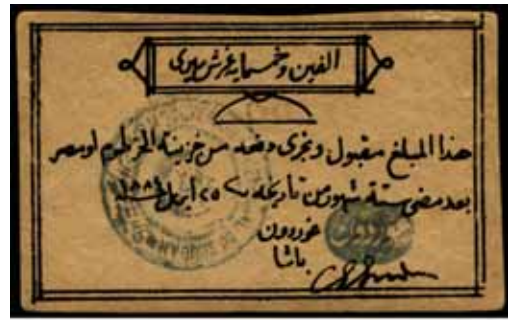 الفين وخمسمايه غرش ميرى
هذا المبلغ مقبول ويجرى دفعه من خزينة الخرطوم او مصر
بعد مضى ستة شهور من تاريخه ٢٥ ابريل ١٨٨٤
غوردون
باشا